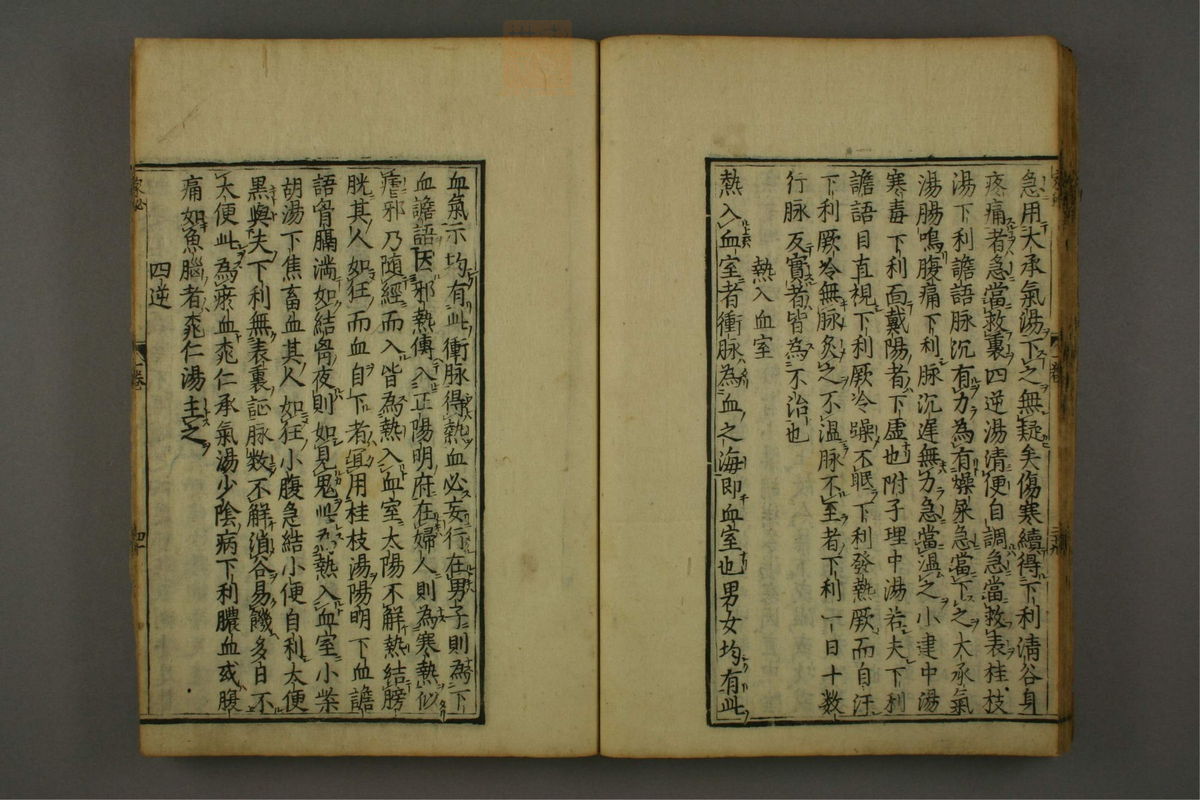 急用大承氣湯下之無疑矣傷寒續得下利清谷身
疼痛者急當救裏四逆湯清便自調急當救表桂枝
湯下利譫語脉沉有力為有燥屎急當下之大承氣
湯腸鳴腹痛下利脉沉遲無力急當溫之小建中湯
寒毒下利面戴陽者下虛也附子理中湯若夫下利
譫語目直視下利厥冷躁不眠下利發熱厥而自汗
下利厥冷無脉灸之不溫脉不至者下利一日十數
行脉反實者皆為不治也
熱入血室
熱入血室者衝脉為血之海即血室也男女均有此
血氣亦均有此衝脉得熱血必妄行在男子則為下
血譫語因邪熱傳入正陽明府在婦人則為寒熱似
瘧邪乃隨經而入皆為熱入血室太陽不解熱結膀
胱其人如狂而血自下者宜用桂枝湯陽明下血譫
語胷膈満如結胷夜則如見鬼此為熱入血室小柴
胡湯下焦畜血其人如狂小腹急結小便自利大便
黑與夫下利無表裏証脉数不解消谷易饑多日不
大便此為瘀血桃仁承氣湯少陰病下利膿血或腹
痛如魚腦者桃仁湯主之
四逆